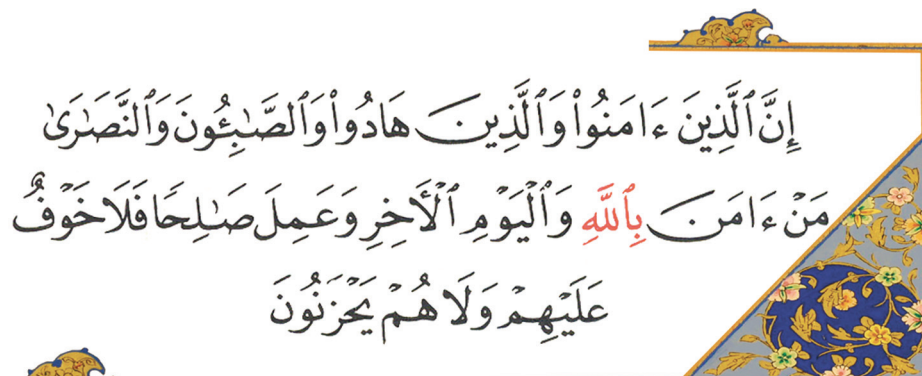 إِنَّ ٱلَّذِينَ ءَامَنُوا۟ وَٱلَّذِينَ هَادُوا۟ وَٱلصَّـٰبِـُٔونَ وَٱلنَّصَـٰرَىٰ
مَنْ ءَامَنَ بِٱللَّهِ وَٱلْيَوْمِ ٱلْـَٔاخِرِ وَعَمِلَ صَـٰلِحًا فَلَا خَوْفٌ
عَلَيْهِمْ وَلَا هُمْ يَحْزَنُونَ